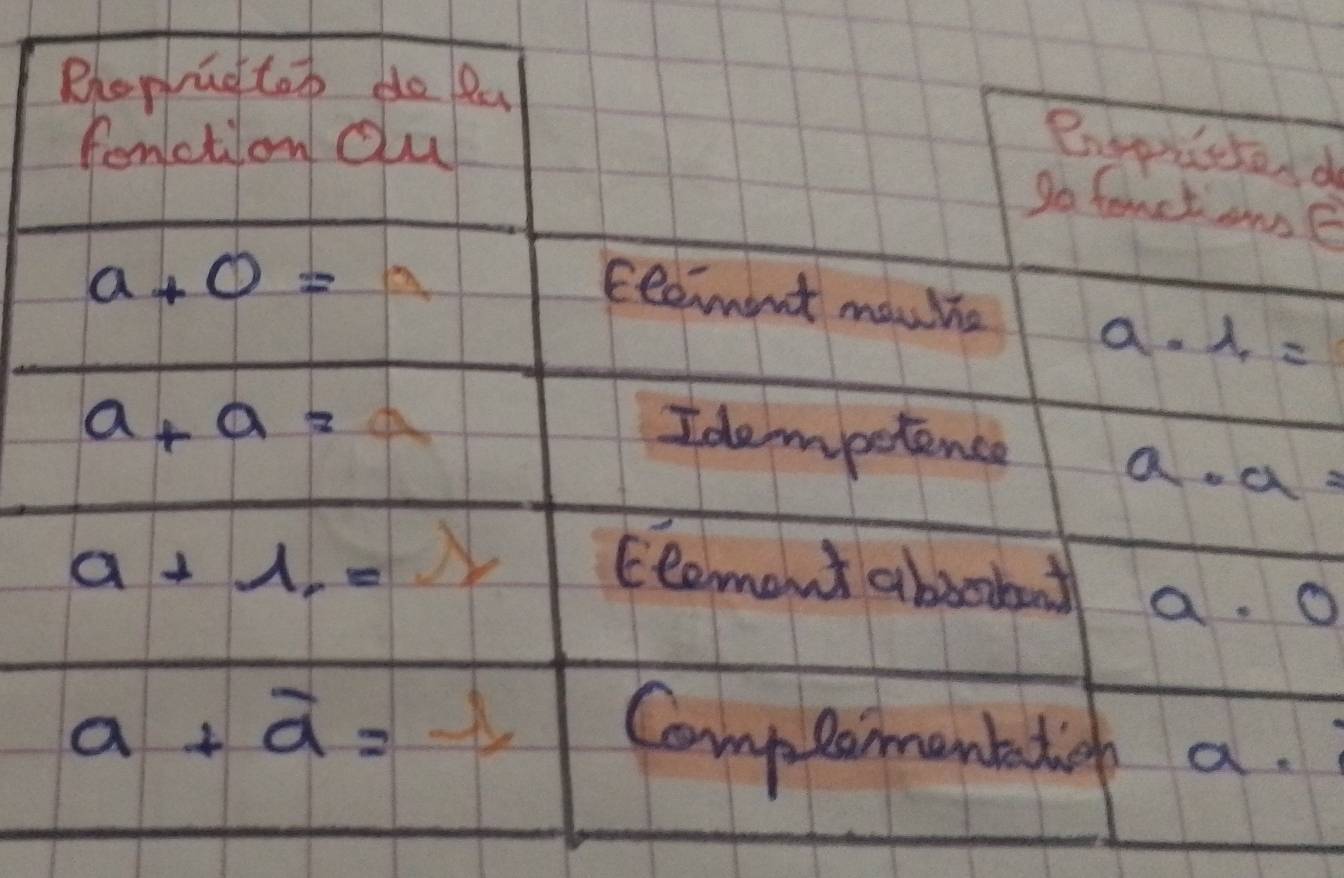 Propriétés de la
fonction Ou
Propriétés de
la fonctions E
a + 0 = a
Elément neutre
a . 1 =
a + a = a
Idempotence
a . a =
a + 1 = 1
Élement absorbant
a . 0
a + ā = 1
Complémentation
a .